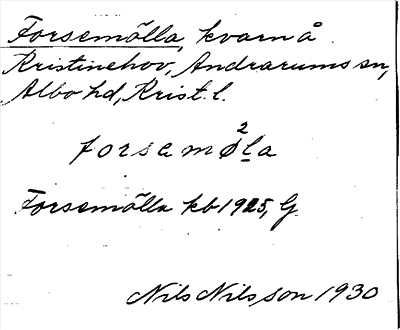 Forsemölla, kvarn å
Kristinehov, Andrarums sn,
Albo hd, Krist. l.
2
forsemøla
Forsemölla kb 1925, G
Nils Nilsson 1930